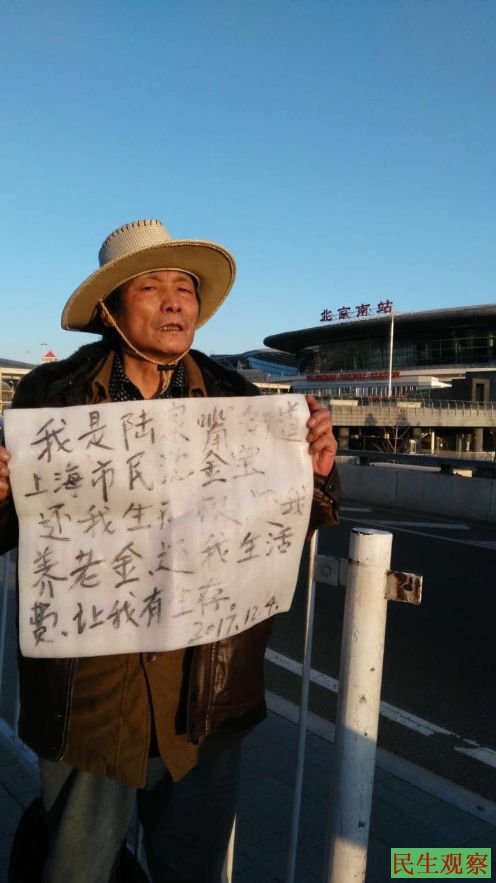 北京南站
我是陆家嘴道
上海市民沈金宝
还我生权还我
养老金、还我生活
费、让我有生存。
2017.12.4.
民生观察